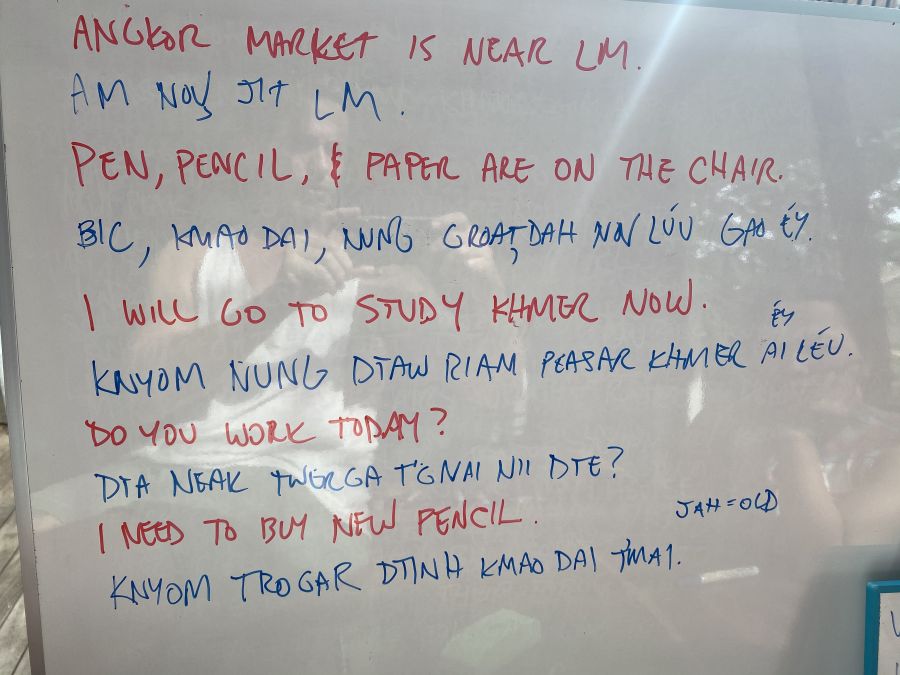 ANGKOR MARKET IS NEAR LM.
AM NOUS JIT LM.
PEN, PENCIL, & PAPER ARE ON THE CHAIR.
BIC, KMAO DAI, NUNG GROAT, DAH NN LÚU GAO ÉY.
I WILL GO TO STUDY KHMER NOW.
ÉY
KNYOM NUNG DTAW RIAM PEASAR KHMER AI LÉU.
DO YOU WORK TODAY?
DTA NEAK TWERGA T'GNAI NII DTE?
I NEED TO BUY NEW PENCIL.
JAH = OLD
KNYOM TROGAR DTINH KMAO DAI T'MAI.